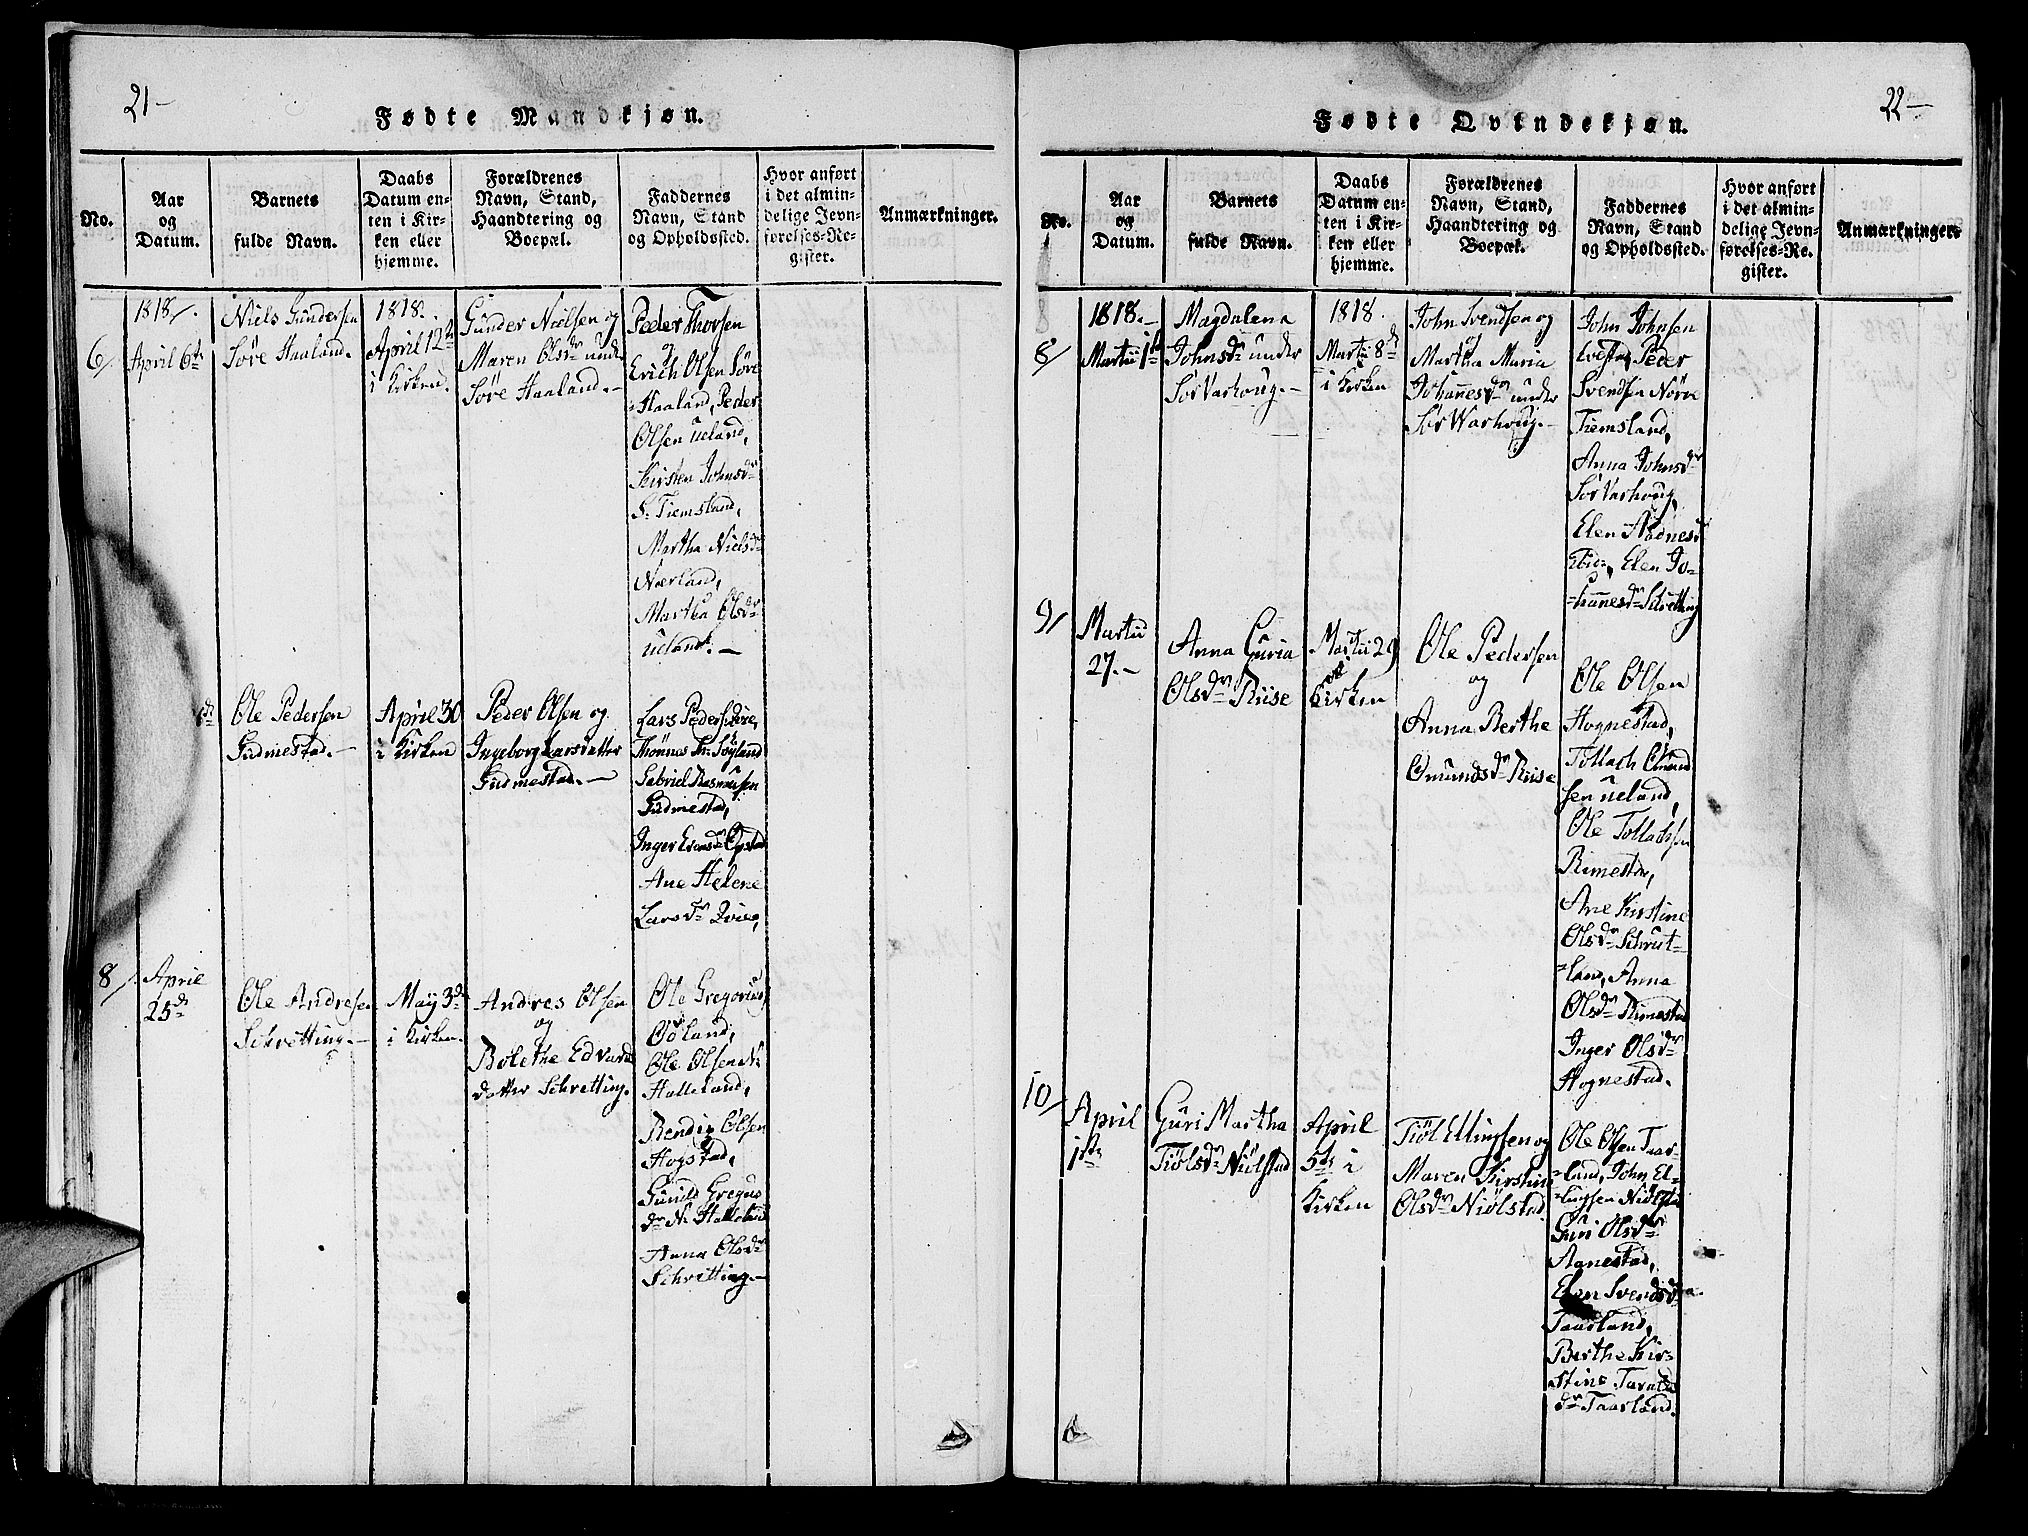 21-
Fødte Mandkjøn.
No.
Aar
og
Datum.
Barnets
fulde Navn.
Daabs
Datum en-
ten i Kir-
ken eller
hjemme.
Forældrenes
Navn, Stand,
Haandtering og
Boepæl.
Faddernes
Navn, Stand
og Opholdssted.
Hvor anført
i det almin-
delige Jevn-
førelses-Re-
gister.
Anmærkninger.
6/
1818/.
April 6te
Niels Gundersen
Søre Haaland.
1818.
April 12te
i Kirken.
Gunder Nielsen og
Maren Olsdr under
Søre Haaland.-
Peder Thorsen
og
Erich Olsen Søre
=Haaland, Peder
Olsen Ueland,
Kirsten Johnsdr
S. Tiemsland,
Martha Nielsdr
Nærland,
Martha Olsdr
Ueland.-
Ole Pedersen
Gudmestad.-
April 30
i Kirken
Peder Olsen og
Ingeborg Larsdatter
Gudmestad.-
Lars Peders
Gabriel Rasmusen
Gudmestad,
Inger
Ane Helene
Larsdr Qvie,
8/.
April
25de
Ole Andresen
Schretting.-
May 3de
i Kirken.
Andres Olsen
og
Bolethe Edvards
datter Schretting.
Ole Gregorius
Odland,
Ole Olsen N.
Halleland,
Bendix Olsen
Hogstad,
Gunild Gregus
dr N. Halleland
Anna Olsdr
Schretting.-
22-
Fødte Qvindekjøn.
No.
Aar
og
Datum.
Barnets
fulde Navn.
Daabs
Datum en-
ten i Kir-
ken eller
hjemme.
Forældrenes
Navn, Stand,
Haandtering og
Boepæl.
Faddernes
Navn, Stand
og Opholdssted.
Hvor anført
i det almin-
delige Jevn-
førelses-Re-
gister.
Anmærkninger.
8/
1818.-
Martii 1te
Magdalena
Johnsdr under
Sør Varhoug.-
1818.
Martii 8de
i Kirken
John Svendsen og
Martha Maria
Johannesdr under
Sør Warhoug.-
John Johnsen
Peder
Svendsen Nörre
Tiemsland,
Anna Johnsdr
Sør Varhoug,
Elen Aadnesdr
Ibid., Elen Jo-
=hannesdr Schretting
9/
Martii
27.-
Anna Guria
Olsdr Riise
Martii 29
Kirken
Ole Pedersen
og
Anna Berthe
Omundsdr Riise
Ole Olsen
Hognestad,
Tollach Omund
sen Ueland,
Ole Tollachsen
Rimestad,
Ane Kirstine
Olsdr Schrut-
=land, Anna
Olsdr Rimestad
Inger Olsdr
Hognestad.
10/
April
1te
Guri Martha
Tiölsdr Niölstad
April
5te i
Kirken
Tiöl Ellingsen og
Maren Kirstine
Olsdr Niölstad
Ole Olsen Taar-
=land, John El-
=lingsen Niölstad
Guri Olsdr
Aanestad,
Elen Svendsdr
Taarland,
Berthe Kir-
stine
dr Taarland.